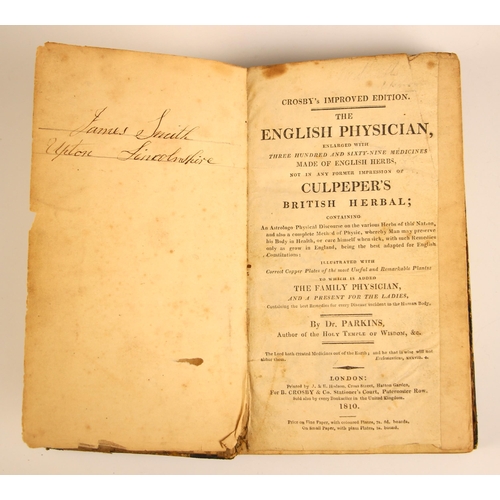 James Smith
Upton Lincolnshire
CROSBY's IMPROVED EDITION.
THE
ENGLISH PHYSICIAN,
ENLARGED WITH
THREE HUNDRED AND SIXTY-NINE MEDICINES
MADE OF ENGLISH HERBS,
NOT IN ANY FORMER IMPRESSION OF
CULPEPER'S
BRITISH HERBAL;
CONTAINING
An Astrologo Physical Discourse on the various Herbs of this Nation,
and also a complete Method of Physic, whereby Man may preserve
his Body in Health, or cure himself when sick, with such Remedies
only as grow in England, being the best adapted for English
Constitutions;
ILLUSTRATED WITH
Correct Copper Plates of the most Useful and Remarkable Plants:
TO WHICH IS ADDED
THE FAMILY PHYSICIAN,
AND A PRESENT FOR THE LADIES,
Containing the best Remedies for every Disease incident to the Human Body.
By Dr. PARKINS,
Author of the HOLY TEMPLE OF WISDOM, &c.
The Lord hath created Medicines out of the Earth; and he that is wise will not
abhor them. Ecclesiasticus,
LONDON:
Printed by J. & E. Hodson, Cross Street, Hatton Garden,
For B. CROSBY & Co. Stationer's Court, Paternoster Row.
Sold also by every Bookseller in the United Kingdom.
1810.
Price on Fine Paper, with coloured Plates, boards,
On Small Paper, with plain Plates, bound.